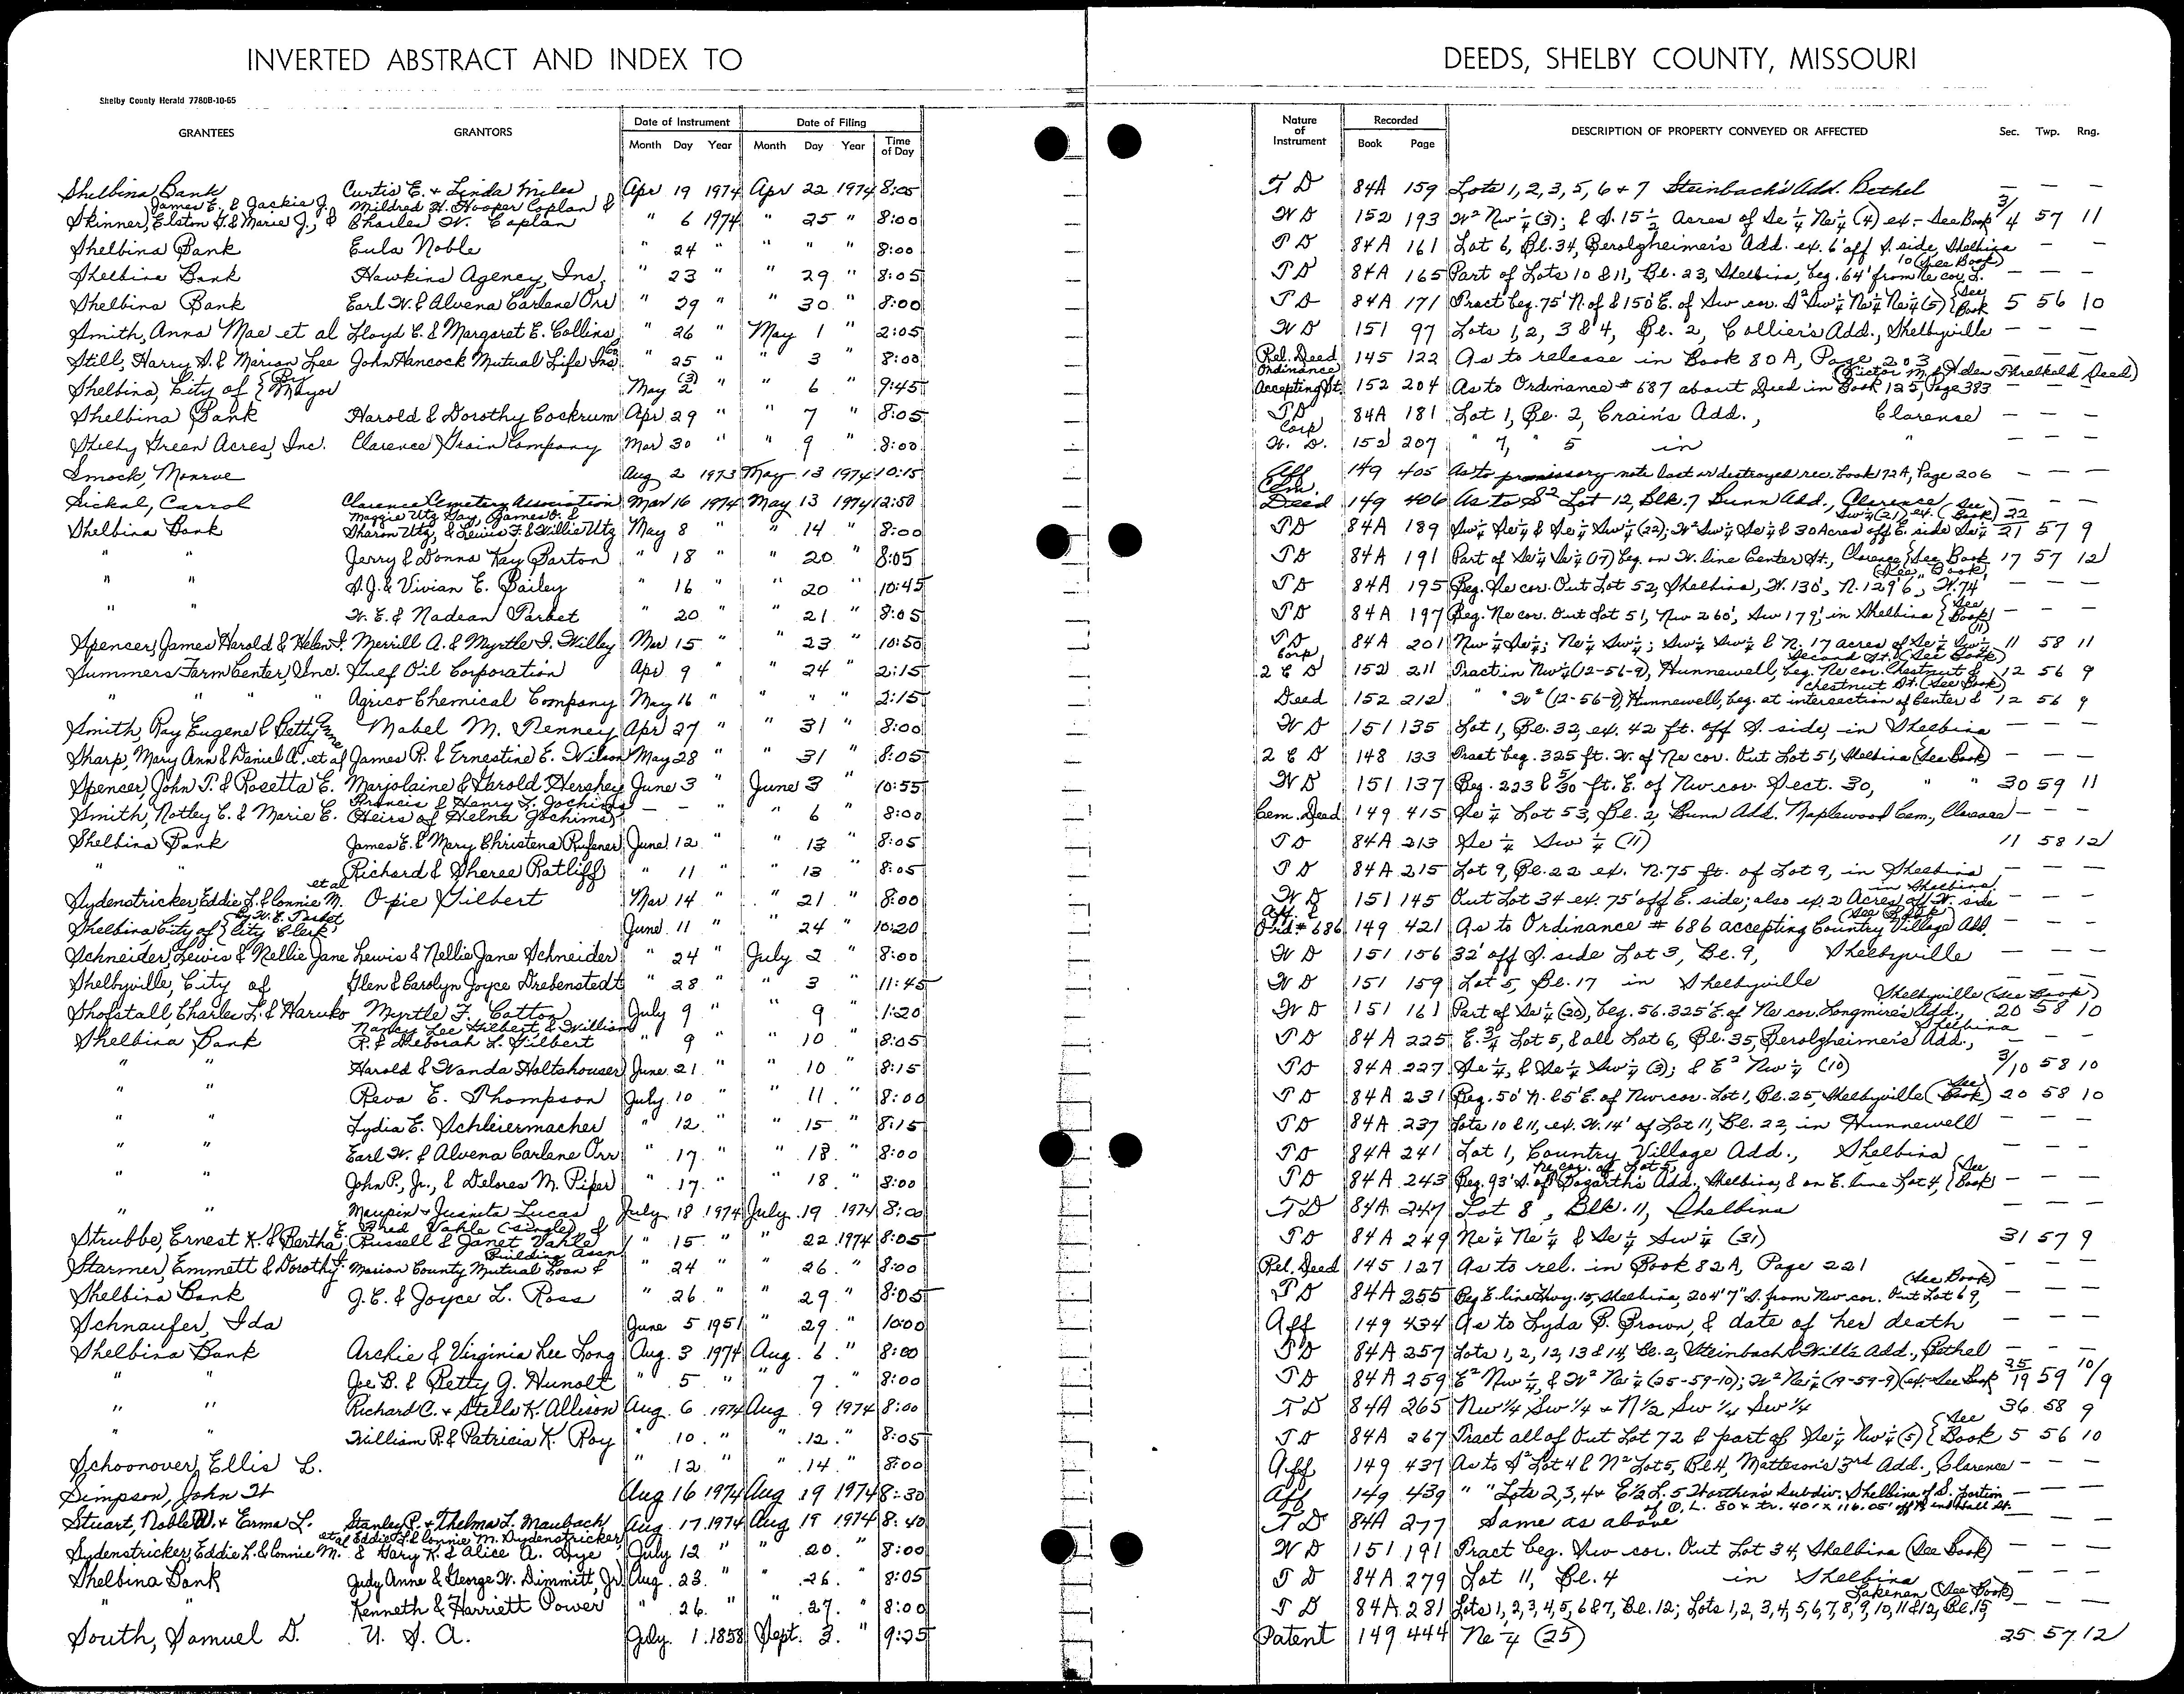 INVERTED ABSTRACT AND INDEX TO DEEDS, SHELBY COUNTY, MISSOURI
Shelby County Herald 7780B-10-65
GRANTEES GRANTORS Date of Instrument Month Day Year Date of Filing Month Day Year Time of Day Nature of Instrument Recorded Book Page DESCRIPTION OF PROPERTY CONVEYED OR AFFECTED Sec. Twp. Rng.
Shelbina Bank Curtis E. & Linda Miles Apr 19 1974 Apr 22 1974 8:05 T D 84A 159 Lots 1, 2, 3, 5, 6 + 7 Steinbach's Add. Bethel — — —
James E. & Jackie J. Mildred H. Hooper Coplan &
Skinner, Elston & Marie J., & Charles W. Coplan " 6 1974 " 25 " 8:00 W D 152 193 W² Nw ¼ (3); & S. 15 ½ Acres of Se ¼ Ne ¼ (4) ex.- See Book 3/4 57 11
Shelbina Bank Eula Noble " 24 " " " " 8:00 T D 84A 161 Lot 6, Bl. 34, Berolzheimer's Add. ex. 6' off S. side, Shelbina — — —
Shelbina Bank Hawkins Agency, Inc. " 23 " " 29 " 8:05 T D 84A 165 Part of Lots 10 & 11, Bl. 23, Shelbina, beg. 64' from Ne cor. L. 10 (See Book) — — —
Shelbina Bank Earl W. & Alvena Carlene Orr " 29 " " 30 " 8:00 T D 84A 171 Tract beg. 75' N. of & 150' E. of Sw cor. S² Sw ¼ Ne ¼ Ne ¼ (5) {See Book 5 56 10
Smith, Anna Mae et al Lloyd C. & Margaret E. Collins " 26 " May 1 " 2:05 W D 151 97 Lots 1, 2, 3 & 4, Bl. 2, Collier's Add., Shelbyville — — —
Still, Harry S. & Marion Lee John Hancock Mutual Life Ins. Co. " 25 " " 3 " 8:00 Rel. Deed 145 122 As to release in Book 80 A, Page 203 — — —
Shelbina, City of {By Mayor May 2 (3) " " 6 " 9:45 Ordinance Accepting St. 152 204 As to Ordinance # 687 about Deed in Book 125, Page 383 (Victor M. & Helen Threlkeld Deed)
Shelbina Bank Harold & Dorothy Cockrum Apr 29 " " 7 " 8:05 T D 84A 181 Lot 1, Bl. 2, Crain's Add., Clarence — — —
Shelby Green Acres, Inc. Clarence Grain Company Mar 30 " " 9 " 8:00 Corp W. D. 152 207 " 7, " 5 in " — — —
Smock, Monroe Aug 2 1973 May 13 1974 10:15 Aff 149 405 As to promissory note lost or destroyed rec. Book 172A, Page 206 — — —
Sickal, Carrol Clarence Cemetery Association Mar 16 1974 May 13 1974 12:50 Cem. Deed 149 406 As to S² Lot 12, Blk. 7 Bunn Add., Clarence — — —
Maggie Utz Gay, James O. &
Shelbina Bank Sharon Utz, & Lewis F. & Willie Utz May 8 " 14 " 8:00 T D 84A 189 Sw ¼ Se ¼ & Se ¼ Sw ¼ (22); W² Sw ¼ Se ¼ & 30 Acres off E. side Se ¼ Sw ¼ (21) ex. (See Book) 22 21 57 9
" " Jerry & Donna Kay Barton " 18 " " 20 " 8:05 T D 84A 191 Part of Se ¼ Se ¼ (17) beg. on W. line Center St., Clarence {See Book 17 57 12
" " S. J. & Vivian E. Bailey " 16 " " 20 " 10:45 T D 84A 195 Beg. Se cor. Out Lot 52, Shelbina, W. 130', N. 129' 6", W. 74' (See Book) — — —
" " W. E. & Nadean Parket " 20 " " 21 " 8:05 T D 84A 197 Beg. Ne cor. Out Lot 51, Nw 260', Sw 179', in Shelbina {See Book} — — —
Spencer, James Harold & Helen I. Merrill A. & Myrtle I. Willey Mar 15 " " 23 " 10:50 T D 84A 201 Nw ¼ Se ¼; Ne ¼ Sw ¼; Sw ¼ Sw ¼ & N. 17 acres of Se ¼ Sw ¼ (11) 11 58 11
Summers Farm Center, Inc. Gulf Oil Corporation Apr 9 " " 24 " 2:15 Corp 2 C D 152 211 Tract in Nw ¼ (12-56-9), Hunnewell, beg. Ne cor. Chestnut & Second St. (See Book) 12 56 9
" " " " Agrico Chemical Company May 16 " " " " 2:15 Deed 152 212 " " W² (12-56-9), Hunnewell, beg. at intersection of Center & Chestnut St. (See Book) 12 56 9
Smith, Ray Eugene & Betty Anne Mabel M. Penney Apr 27 " " 31 " 8:00 W D 151 135 Lot 1, Bl. 32, ex. 42 ft. off S. side, in Shelbina — — —
Sharp, Mary Ann & Daniel A. et al James R. & Ernestine E. Wilson May 28 " 31 " 8:05 2 C D 148 133 Tract beg. 325 ft. W. of Ne cor. Out Lot 51, Shelbina (See Book) — — —
Spencer, John T. & Rosetta E. Marjolaine & Harold Hershey June 3 " June 3 " 10:55 W D 151 137 Beg. 223 & 5/30 ft. E. of Nw cor. Sect. 30, " " 30 59 11
Francis & Henry L. Jochims
Smith, Notley C. & Marie E. Heirs of Helna Jochims — — " " 6 " 8:00 Cem. Deed 149 415 Se ¼ Lot 53, Bl. 2, Bunn Add. Maplewood Cem., Clarence — — —
Shelbina Bank James E. & Mary Christena Rufener June 12 " " 13 " 8:05 T D 84A 213 Se ¼ Sw ¼ (11) 11 58 12
" " Richard & Sheree Ratliff " 11 " " 13 " 8:05 T D 84A 215 Lot 9, Bl. 22 ex. N. 75 ft. of Lot 9, in Shelbina — — —
Sydenstricker, Eddie L. & Connie M. et al Opie Gilbert Mar 14 " " 21 " 8:00 W D 151 145 Out Lot 34 ex. 75' off E. side; also ex. 2 Acres off W. side in Shelbina — — —
Shelbina City of {By W. E. Parket City Clerk June 11 " " 24 " 10:20 Aff. & Ord # 686 149 421 As to Ordinance # 686 accepting Country Village Add. (See Book) — — —
Schneider, Lewis & Nellie Jane Lewis & Nellie Jane Schneider " 24 " July 2 " 8:00 W D 151 156 32' off S. side Lot 3, Bl. 9, Shelbyville — — —
Shelbyville, City of Glen & Carolyn Joyce Drebenstedt " 28 " " 3 " 11:45 W D 151 159 Lot 5, Bl. 17 in Shelbyville — — —
Shofstall, Charles L. & Haruko Myrtle F. Catton July 9 " " 9 " 1:20 W D 151 161 Part of Se ¼ (20), beg. 56.325' E. of Ne cor. Longmire's Add., Shelbyville (See Book) 20 58 10
Nancy Lee Gilbert, & William
Shelbina Bank R. & Deborah L. Gilbert " 9 " 10 " 8:05 T D 84A 225 E. ¾ Lot 5, & all Lot 6, Bl. 35, Berolzheimer's Add., Shelbina — — —
" " Harold & Wanda Holtshouser June 21 " " 10 " 8:15 T D 84A 227 Se ¼, & Se ¼ Sw ¼ (3); & E² Nw ¼ (10) 3/10 58 10
" " Reva E. Thompson July 10 " " 11 " 8:00 T D 84A 231 Beg. 50' N. & 5' E. of Nw cor. Lot 1, Bl. 25, Shelbyville (See Book) 20 58 10
" " Lydia E. Schleiermacher " 12 " " 15 " 8:15 T D 84A 237 Lots 10 & 11, ex. W. 14' of Lot 11, Bl. 22, in Hunnewell — — —
" " Earl W. & Alvena Carlene Orr " 17 " " 18 " 8:00 T D 84A 241 Lot 1, Country Village Add., Shelbina — — —
" " John P., Jr., & Delores M. Piper " 17 " " 18 " 8:00 T D 84A 243 Beg. 93' S. of Ne cor. of Lot 5, Bogarth's Add., Shelbina, & on E. line Lot 4, {See Book} — — —
" " Maupin & Juanita Lucas July 18 1974 July 19 1974 8:00 T D 84A 247 Lot 8, Blk. 11, Shelbina — — —
Fred Vahle (single) &
Strubbe, Ernest K. & Bertha E. Russell & Janet Vahle " 15 " " 22 1974 8:05 T D 84A 249 Ne ¼ Ne ¼ & Se ¼ Sw ¼ (31) 31 57 9
Starmer, Emmett & Dorothy J. Marion County Mutual Loan & Building Assn. " 24 " 26 " 8:00 Rel. Deed 145 127 As to rel. in Book 82A, Page 221 — — —
Shelbina Bank J. C. & Joyce L. Ross " 26 " " 29 " 8:05 T D 84A 255 Beg. E. line Hwy. 15, Shelbina, 204' 7" S. from Nw cor. Out Lot 69, (See Book) — — —
Schnaufer, Ida June 5 1951 " 29 " 10:00 Aff 149 434 As to Lyda B. Brown, & date of her death — — —
Shelbina Bank Archie & Virginia Lee Long Aug. 3 1974 Aug. 6 " 8:00 T D 84A 257 Lots 1, 2, 12, 13 & 14, Bl. 2, Steinbach & Will's Add., Bethel — — —
" " Joe B. & Betty J. Hunolt " 5 " " 7 " 8:00 T D 84A 259 E² Nw ¼, & W² Ne ¼ (25-59-10); W² Nw ¼ (19-59-9) (ex.- See Book 25/19 59 10/9
" " Richard C. & Stella K. Allison Aug. 6 1974 Aug. 9 1974 8:00 T D 84A 265 Nw ¼ Sw ¼ + N ½ Sw ¼ Sw ¼ 36 58 9
" " William R. & Patricia K. Roy " 10 " " 12 " 8:05 T D 84A 267 Tract all of Out Lot 72 & part of Se ¼ Nw ¼ (5) {See Book 5 56 10
Schoonover, Ellis L. " 12 " " 14 " 8:00 Aff 149 437 As to S² Lot 4 & N² Lot 5, Bl. 4, Matteson's 3rd Add., Clarence — — —
Simpson, John W Aug 16 1974 Aug 19 1974 8:30 Aff 149 439 " " Lots 2, 3, 4 + E ½ L. 5 Worthen's Subdiv. Shelbina of S. portion of O. L. 80 + tr. 40' x 116.05' — — —
Stuart, Noble W. & Erma L. Stanley P. & Thelma L. Maubach Aug. 17 1974 Aug 19 1974 8:40 T D 84A 277 Same as above — — —
Eddie L. & Connie M. Sydenstricker
Sydenstricker, Eddie L. & Connie M. et al & Gary K. & Alice A. Dye July 12 " " 20 " 8:00 W D 151 191 Tract beg. Nw cor. Out Lot 34, Shelbina (See Book) — — —
Shelbina Bank Judy Anne & George W. Dimmitt, Jr. Aug. 23 " " 26 " 8:05 T D 84A 279 Lot 11, Bl. 4 in Shelbina — — —
" " Kenneth & Harriett Power " 26 " " 27 " 8:00 T D 84A 281 Lots 1, 2, 3, 4, 5, 6 & 7, Bl. 12; Lots 1, 2, 3, 4, 5, 6, 7, 8, 9, 10, 11 & 12, Bl. 15, Lakenan (See Book) — — —
South, Samuel D. U. S. A. July 1 1858 Sept. 3 " 9:25 Patent 149 444 Ne ¼ (25) 25 57 12